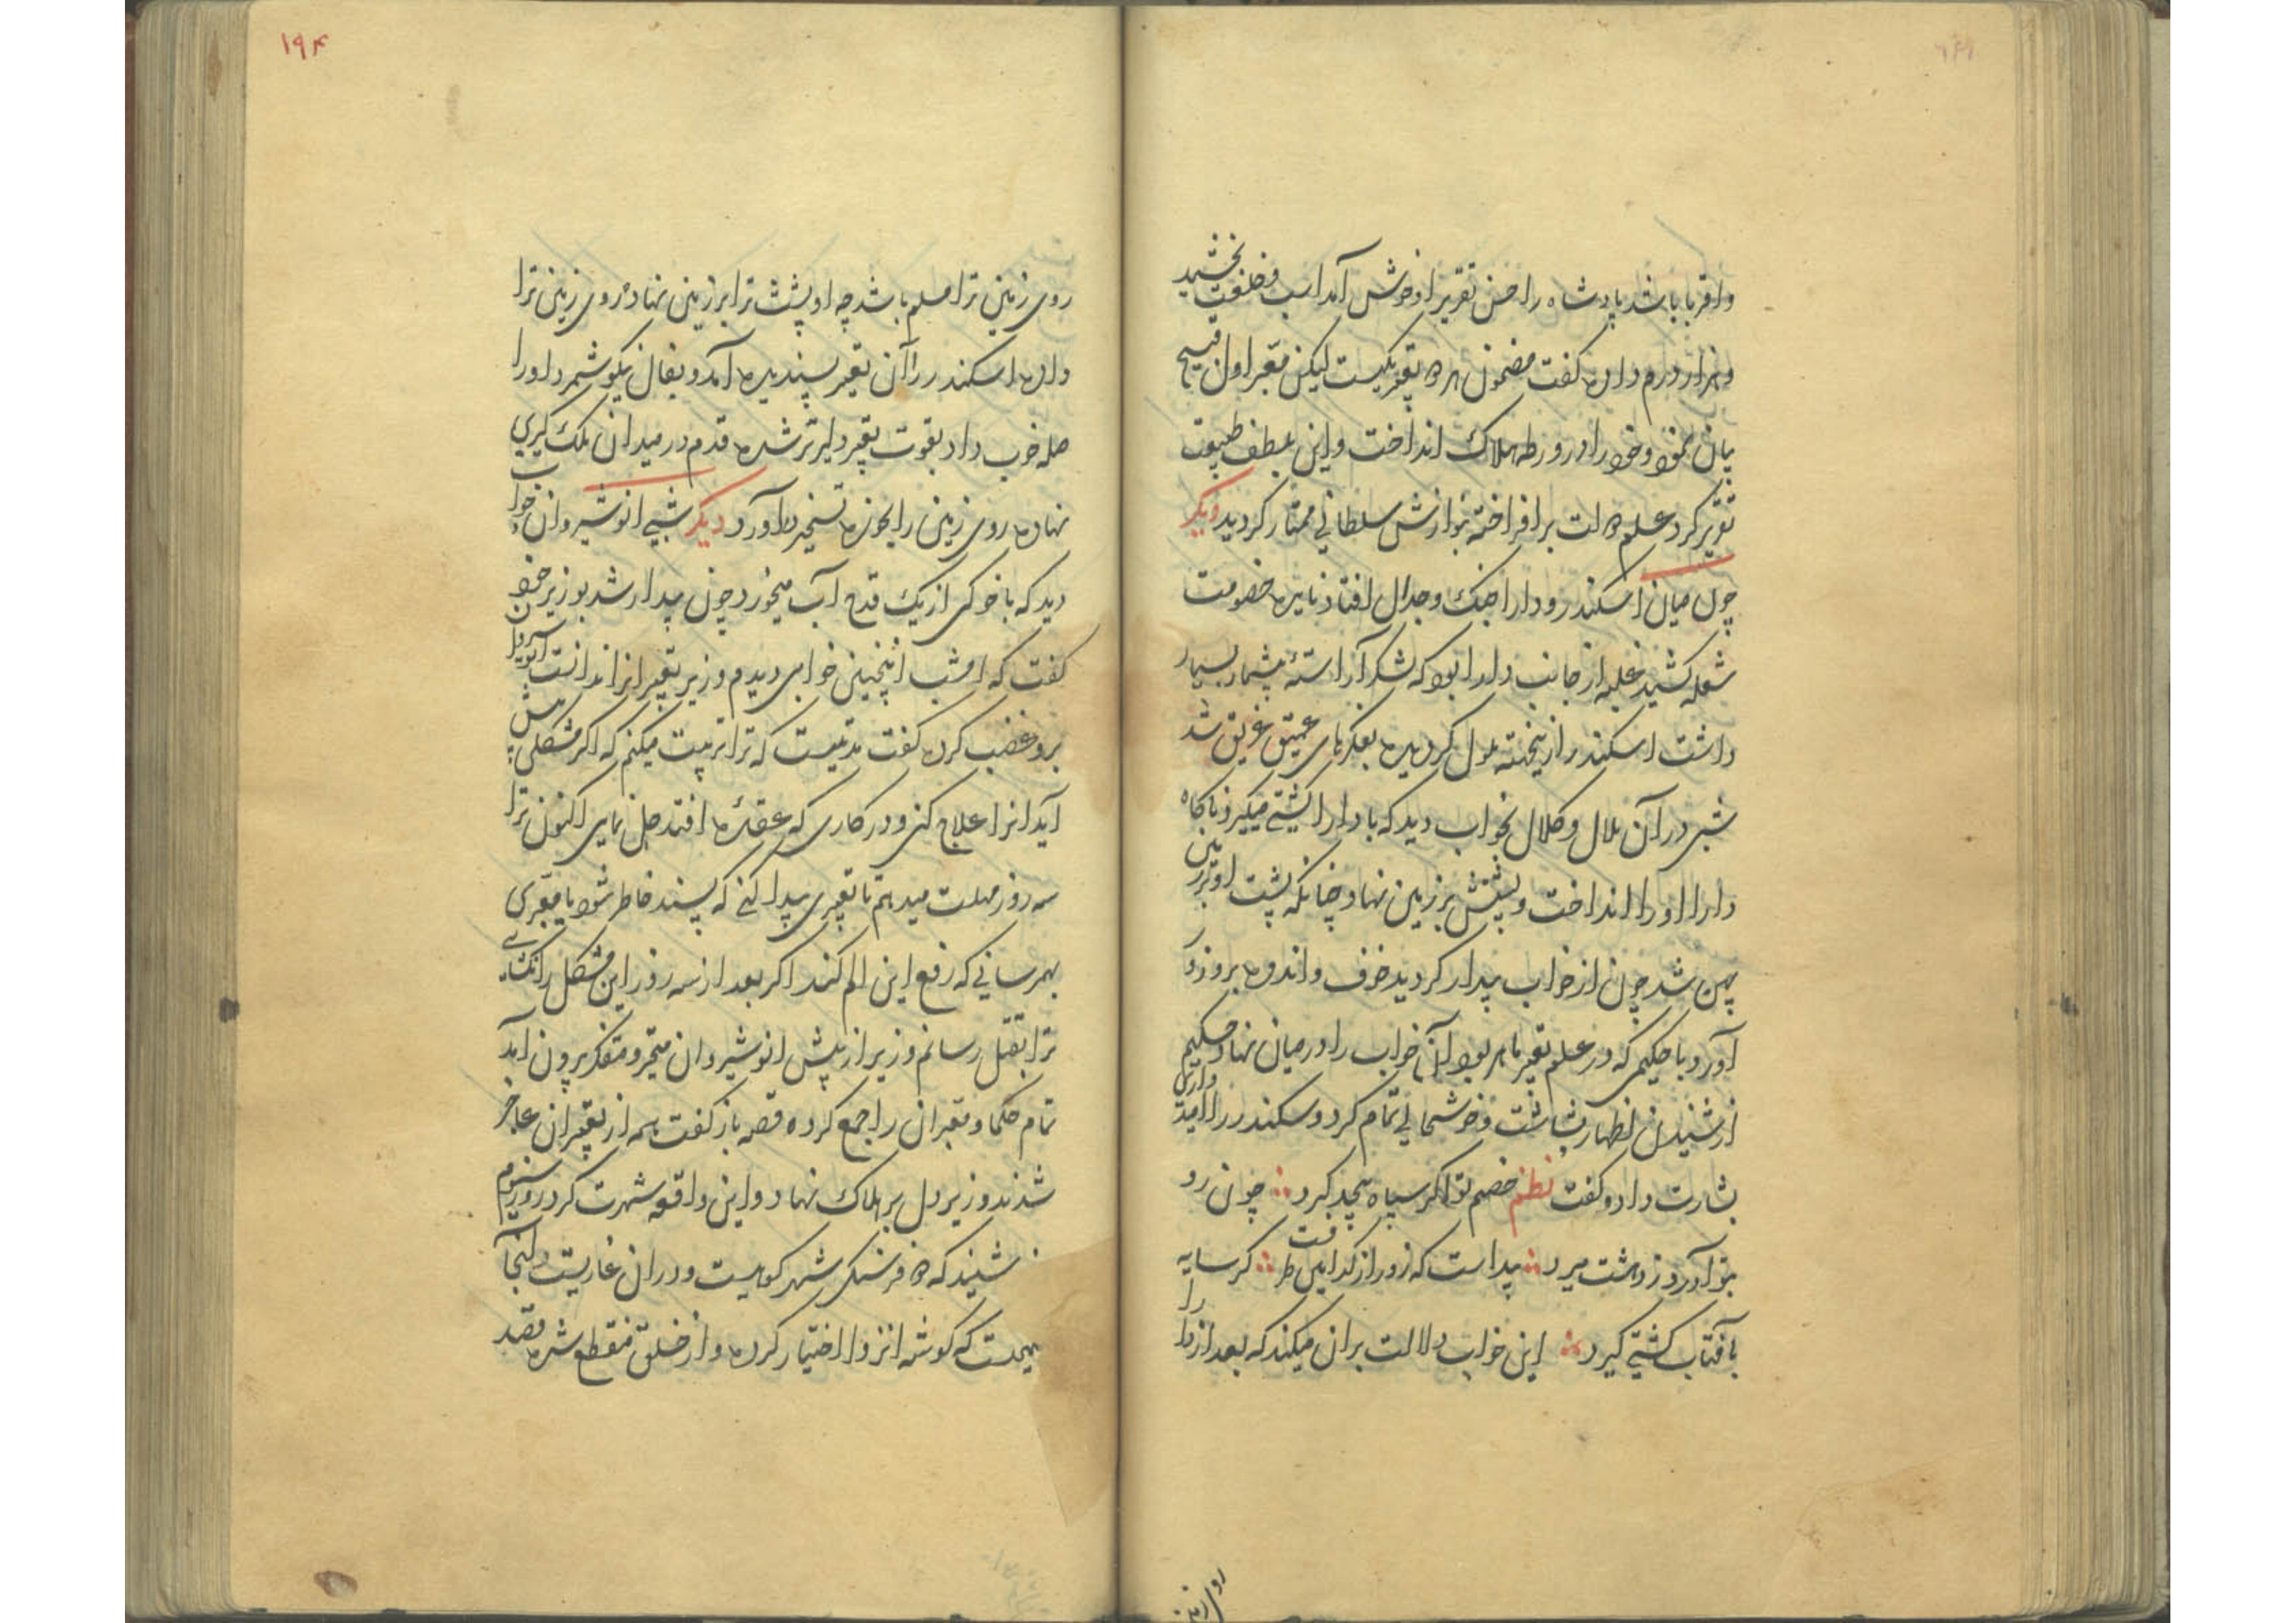 واقربا باشد پادشاه را حسن تقریر او خوش آمد اسب و خلعت بخشید
و هزار درم داده گفت مضمون هر دو تعبیر یکیست لیکن معبر اول قبیح
بیان نمود و خود را در ورطه هلاک انداخت و این بلطف طبیعت
تقریر کرد علم دولت برافراخته بنوازش سلطانی ممتاز گردید دیگر
چون میان اسکندر و دارا جنک و جدال افتاد نایره خصومت
شعله کشید غلبه از جانب دارا بود که لشکر آراسته بیشمار بسیار
داشت اسکندر ازینجهته ملول گردیده بفکرهای عمیق غریق شد
شبی در آن ملال و کلال بخواب دید که با دارا کشتی میگیرد ناکاه
دارا او را انداخت و پشتش بر زمین نهاد چنانکه پشت او بر زمین
پهن شد چون از خواب بیدار گردید خوف و اندوه برو زور
آورد با حکیمی که در علم تعبیر ماهر بود آن خواب را در میان نهاد حکیم
از شنیدن اظهار بشاشت و خوشحالی تمام کرد و سکندر را امیدوار
بشارت داد و گفت نظم خصم تو اگر سپاه بیحد گیرد چون رو
بتو آورد ز دهشت میرد پیداست که زور از کدامین طرفت گر سایه
بآفتاب کشتی گیرد این خواب دلالت بران میکند که بعد از دارا
روی زمین
۱۹۴
روی زمین ترا مسلم باشد چه او پشت ترا بر زمین نهاد روی زمین ترا
داده اسکندر را آن تعبیر پسندیده آمد و بفال نیکو شمرد او را
صله خوب داد بقوت تعبیر دلیرتر شده قدم در میدان ملک گیری
نهاده روی زمین را بحوزه تسخیر درآورد دیگر شبی انوشیروان خواب
دید که با خوکی از یک قدح آب میخورد چون بیدار شد بوزیر خود
گفت که امشب اینچنین خوابی دیدم وزیر تعبیر انرا ندانست انوشیروان
برو غضب کرده گفت مدتیست که ترا تربیت میکنم که اکر مشکلی پیش
آید انرا علاج کنی و در کاری که عقده افتد حل نمای اکنون ترا
سه روز مهلت میدهم تا تعبیری پیدا کنی که پسند خاطر شود یا معبری
بهم رسانی که رفع این الم کند اکر بعد از سه روز این مشکل را نکشائی
ترا بقتل رسانم وزیر از پیش انوشیروان متحیر و متفکر بیرون آمد
تمام حکما و معبران را جمع کرده قصه باز کفت همه از تعبیر ان عاجز
شدند وزیر دل بر هلاک نهاد و این واقعه شهرت کرد روز سیوم
شنید که دو فرسنکی شهر کوهیست و دران غاریست در انجا
حکیمیست که گوشه انزوا اختیار کرده و از خلق منقطع شده قصد